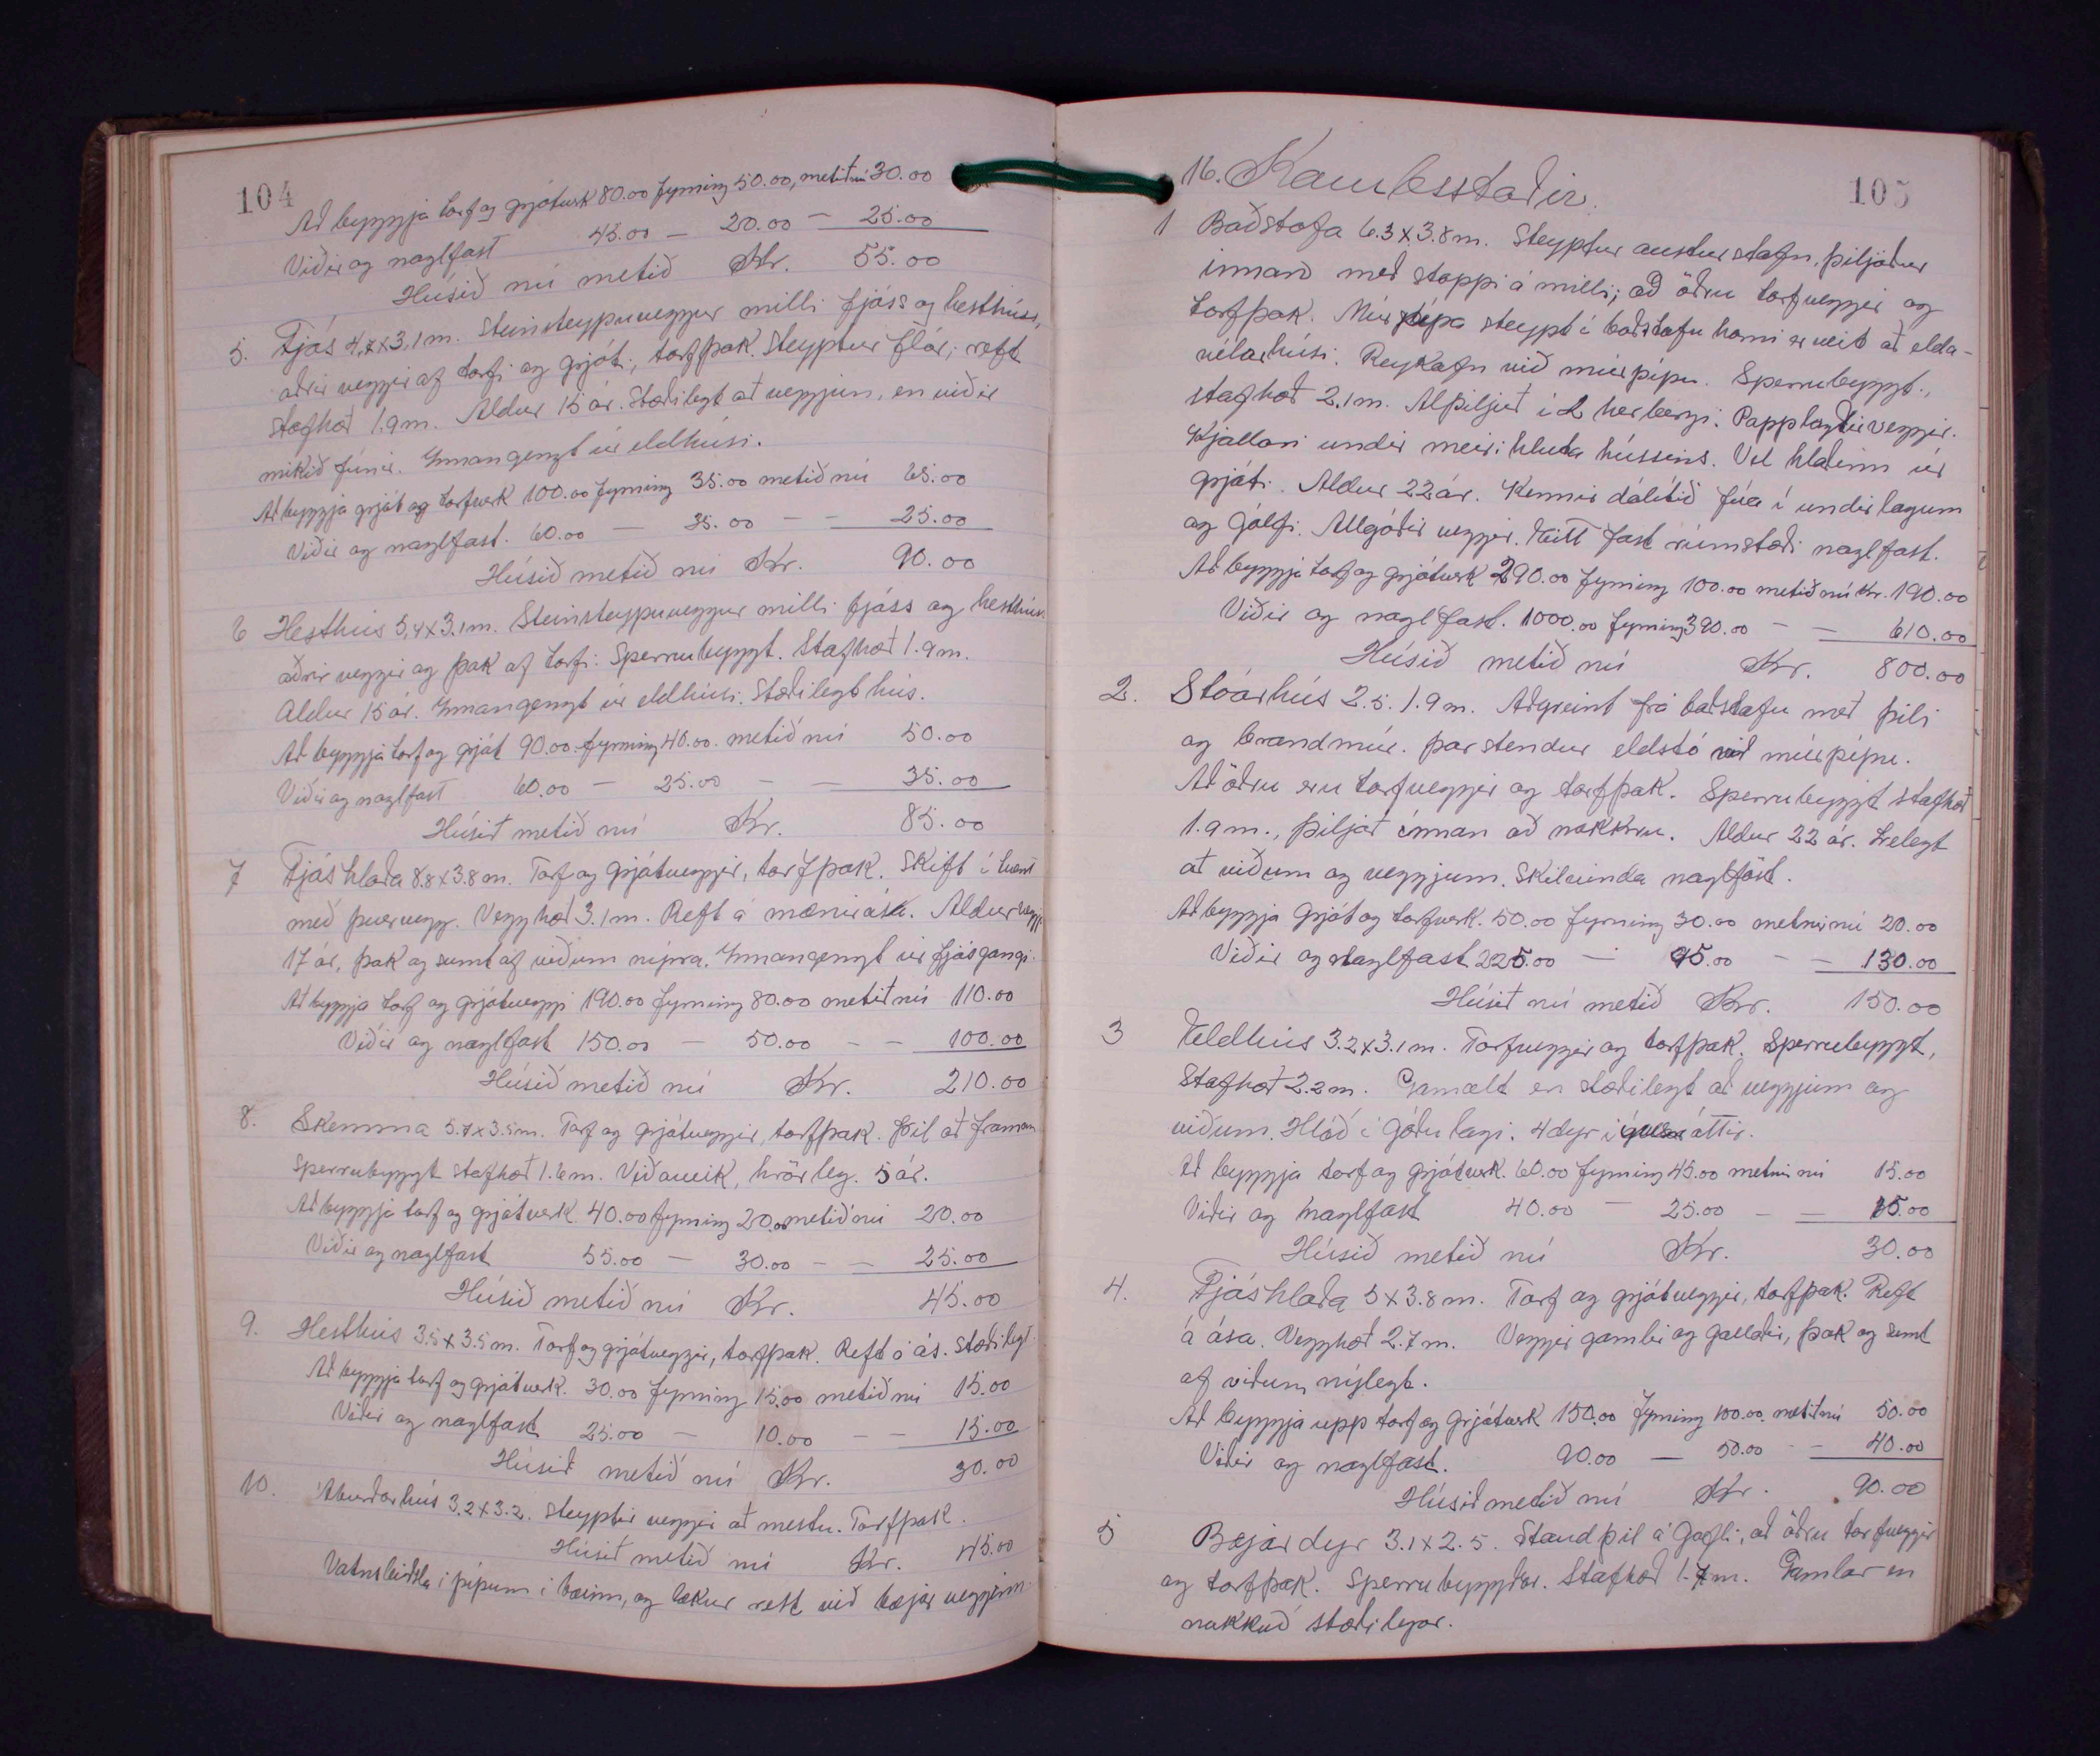 104
Að byggja torf og grjótverk 80.00 fyrning 50.00, metið nú 30.00
Viðir og naglfast 45.00 — 20.00 — 25.00
Húsið nú metið Kr. 55.00
5. Fjós 4,7x3,1m. Steinsteypuveggur milli fjóss og hesthúss,
aðrir veggir af torfi og grjóti, torfþak. Steyptur flór; reft
stafhæð 1.9m. Aldur 15 ár. Stæðilegt að veggjum, en viðir
mikið fúnir. Innangengt úr eldhúsi.
Að byggja grjót og torfverk 100.00 fyrning 35.00 metið nú 65.00
Viðir og naglfast. 60.00 — 35.00 — — 25.00
Húsið metið nú Kr. 90.00
6 Hesthús 5,4x3.1m. Steinsteypuveggur milli fjóss og hesthúss
aðrir veggir og þak af torfi. Sperrubyggt. Stafhæð 1.9m.
Aldur 15 ár. Innangengt úr eldhúsi. Stæðilegt hús.
Að byggja torf og grjót 90.00. fyrning 40.00. metið nú 50.00
Viðir og naglfast 60.00 — 25.00 — — 35.00
Húsið metið nú Kr. 85.00
7 Fjóshlaða 8.8x3.8m. Torf og grjótveggir, torfþak. Skift í tvent
með þvervegg. Vegghæð 3.1m. Reft á mænirása. Aldur veggja
17 ár, þak og sumt af viðum nýrra. Innangengt úr fjósgangi.
Að byggja torf og grjótveggi 190.00 fyrning 80.00 metið nú 110.00
Viðir og naglfast 150.00 — 50.00 — — 100.00
Húsið metið nú Kr. 210.00
8. Skemma 5.7x3.5m. Torf og grjótveggir, torfþak. Þil að framan
Sperrubyggt stafhæð 1.6m. Viðaveik, hrörleg. 5 ár.
Að byggja torf og grjótverk 40.00 fyrning 20.00 metið nú 20.00
Viðir og naglfast 55.00 — 30.00 — — 25.00
Húsið metið nú Kr. 45.00
9. Hesthús 3.5x3.5m. Torf og grjótveggir, torfþak. Reft á ás. Stæðilegt.
Að byggja torf og grjótverk. 30.00 fyrning 15.00 metið nú 15.00
Viðir og naglfast 25.00 — 10.00 — — 15.00
Húsið metið nú Kr. 30.00
10. Áburðarhús 3.2x3.2. Steyptir veggir að mestu. Torfþak.
Húsið metið nú Kr. 45.00
Vatnsleiðsla í pípum í bæinn, og lækur rétt við bæjarvegginn.
105
16. Kambsstaðir.
1 Baðstofa 6.3x3.8m. Steyptur austurstafn, þiljaður
innan með stoppi á milli; að öðru torfveggir og
torfþak. Múrpípa steypt í baðstofu horni er veit að elda-
vélarhúsi. Reykofn við múrpípu. Sperrubyggt.,
stafhæð 2.1m. Alþiljuð í 2 herbergi. Papplagðir veggir.
Kjallari undir meiri hluta hússins. Vel hlaðinn úr
grjóti. Aldur 22 ár. Kennir dálítið fúa í undirlagum
og gólfi. Allgóðir veggir. Eitt fast rúmstæði naglfast.
Að byggja torf og grjótverk 290.00 fyrning 100.00 metið nú kr. 190.00
Viðir og naglfast. 1000.00 fyrning 390.00 — — 610.00
Húsið metið nú Kr. 800.00
2. Stóarhús 2.5. 1.9m. Aðgreint frá baðstofu með þili
og brandmúr. Þar stendur eldstó við múrpípu.
Að öðru eru torfveggir og torfþak. Sperrubyggt stafhæð
1.9m., þiljað innan að nokkru. Aldur 22 ár. Lélegt
að viðum og veggjum. Skilvinda naglföst.
Að byggja grjót og torfverk. 50.00 fyrning 30.00 metnir nú 20.00
Viðir og naglfast 225.00 — 95.00 — — 130.00
Húsið nú metið Kr. 150.00
3 Eldhús 3.2x3.1m. Torfveggir og torfþak. Sperrubyggt,
Stafhæð 2.2m. Gamalt en stæðilegt að veggjum og
viðum. Hlóð í góðu lagi. 4 dyr í áttir.
Að byggja torf og grjótverk. 60.00 fyrning 45.00 metnir nú 15.00
Viðir og naglfast 40.00 — 25.00 — — 15.00
Húsið metið nú Kr. 30.00
4. Fjóshlaða 5x3.8m. Torf og grjótveggir, torfþak. Reft
á ása. Vegghæð 2.7m. Veggir gamlir og gallaðir, þak og sumt
af viðum nýlegt.
Að byggja upp torf og grjótverk 150.00 fyrning 100.00 metið nú 50.00
Viðir og naglfast. 90.00 — 50.00 — — 40.00
Húsið metið nú Kr. 90.00
5 Bæjardyr 3.1x2.5. Standþil á gafli, að öðru torfveggir
og torfþak. Sperrubyggðar. Stafhæð 1.7m. Gamlar en
nokkuð stæðilegar.